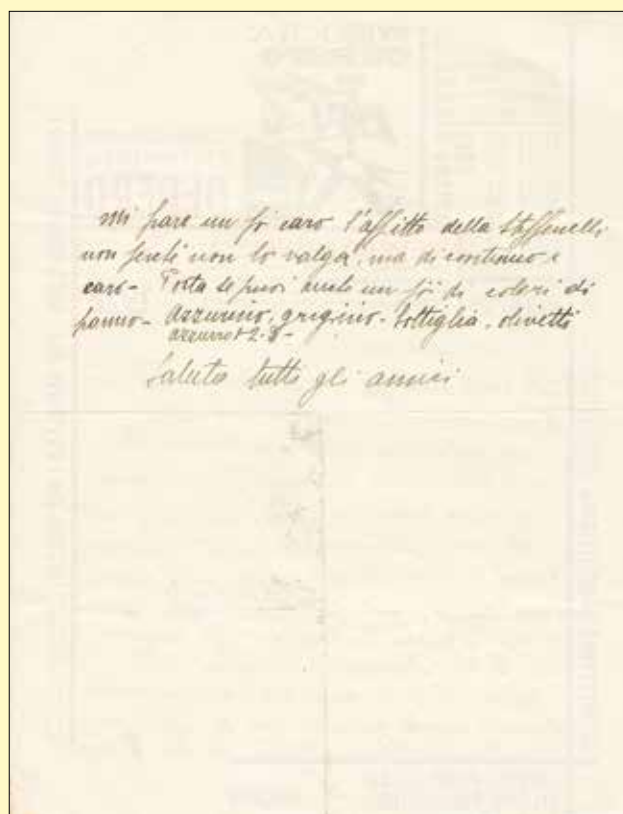 Mi pare un pò caro l'affitto della Steffenelli
non perché non lo valga, ma di continuo è
caro - Porta se puoi anche un pò di colori di
panno - azzurrino, grigino - bottiglia, olivetti
azzurro + 2-3 -
Saluta tutti gli amici